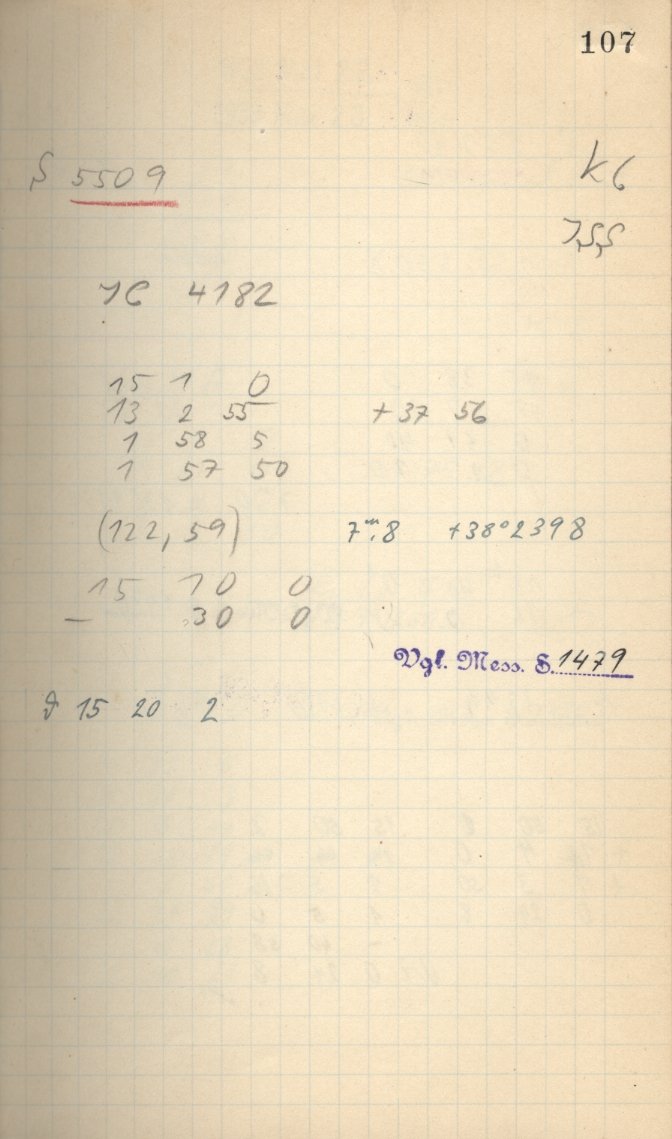 107
S 5509
K6
JSS
JC 4182
15 1 0
13 2 55 +37 56
1 58 5
1 57 50
(122, 59) 7ᵐ.8 +38°2398
15 10 0
- 30 0
Vgl. Mess. S. 1479
ϑ 15 20 2